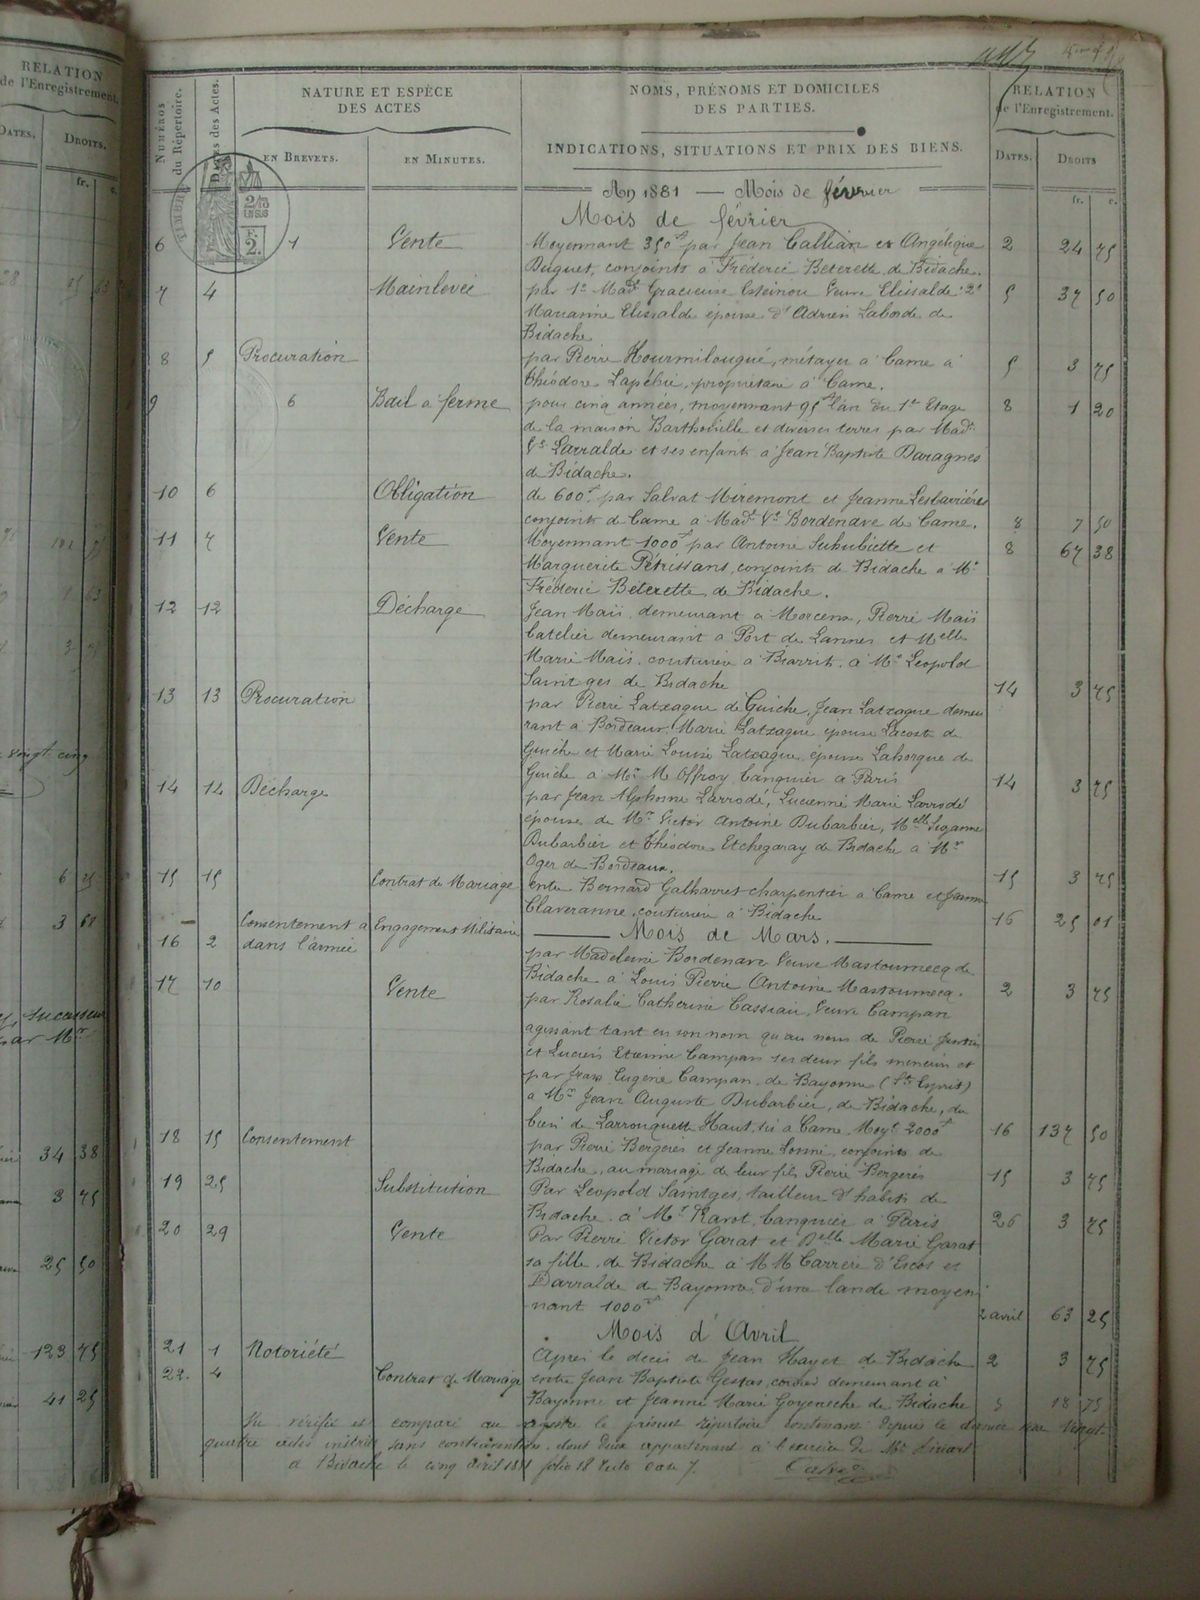 RELATION
de l'Enregistrement.
DATES.
DROITS.
fr.
c.
vingt cinq
6 25
3 68
successeur
par Mr
34 38
3 75
25 50
123 75
41 25
NUMÉROS du Répertoire.
Dates des Actes.
NATURE ET ESPÈCE
DES ACTES
EN BREVETS.
EN MINUTES.
NOMS, PRÉNOMS ET DOMICILES
DES PARTIES.
INDICATIONS, SITUATIONS ET PRIX DES BIENS.
RELATION
de l'Enregistrement.
DATES.
DROITS
fr.
c.
TIMBRE
2/10
EN SUS
F.
2.
An 1881 — Mois de février
Mois de février
6 1 Vente Moyennant 350f par Jean Callian et Angélique 2 24 75
Duguet, conjoints à Fréderic Béterette de Bidache.
7 4 Mainlevée par 1° Made Gracieuse Veuve Elissalde 2° 5 37 50
Marianne Elissalde épouse d'Adrien Laborde de
Bidache
8 5 Procuration par Pierre Hourmilougué, métayer à Came à 5 3 75
Théodore Lapébie, propriétaire à Came.
9 6 Bail à ferme pour cinq années, moyennant 95f l'an du 1er Etage 8 1 20
de la maison Barthouille et diverses terres par Made
Ve Larralde et ses enfants à Jean Baptiste Daragnes
de Bidache.
10 6 Obligation de 600f par Salvat Miremont et Jeanne Lesbarrières
conjoints de Came à Made Ve Bordenave de Came. 8 7 50
11 7 Vente Moyennant 1000f par Antoine Suhubiette et 8 67 38
Marguerite Pétrissans, conjoints de Bidache à Mr
Fréderic Béterette de Bidache.
12 12 Décharge Jean Maïs demeurant à Morcenx, Pierre Maïs
batelier demeurant à Port de Lannes et Melle
Marie Maïs, couturière à Biarritz à Mr Léopold
Saint ges de Bidache 14 3 75
13 13 Procuration par Pierre Latxague de Guiche, Jean Latxague demeu
rant à Bordeaux, Marie Latxague épouse Lacoste de
Guiche et Marie Louise Latxague épouse Lahorgue de
Guiche à Mr M Offroy banquier à Paris 14 3 75
14 14 Décharge par Jean Alphonse Larrodé, Lucienne Marie Larrodé
épouse de Mr Victor Antoine Dubarbier, Melle Suzanne
Dubarbier et Théodore Etchegaray de Bidache à Mr
Oger de Bordeaux. 15 3 75
15 15 Contrat de Mariage entre Bernard Galharret charpentier à Came et Jeanne
Claveranne, couturière à Bidache 16 25 01
Consentement à Engagement Militaire Mois de Mars.
16 2 dans l'armée par Madeleine Bordenave Veuve Mastoumecq de
Bidache à Louis Pierre Antoine Mastoumecq. 2 3 75
17 10 Vente par Rosalie Catherine Cassiau, Veuve Campan
agissant tant en son nom qu'au nom de Pierre Justin
et Lucien Etienne Campan ses deux fils mineurs et
par Jean Eugène Campan, de Bayonne (St Esprit)
à Mr Jean Auguste Dubarbier, de Bidache, du
bien de Larrouquette Haut, sis à Came. Moyt 2000f 16 137 50
18 15 Consentement par Pierre Bergerès et Jeanne conjoints de
Bidache, au mariage de leur fils Pierre Bergerès 15 3 75
19 25 Substitution Par Léopold Saintges, tailleur d'habits de
Bidache à Mr Karot, banquier à Paris 26 3 75
20 29 Vente Par Pierre Victor Garat et Delle Marie Garat
sa fille, de Bidache à MM Carrère d'Escos et
Darralde de Bayonne, d'une lande moyen
nant 1000f 2 avril 63 25
Mois d'Avril
21 1 Notoriété Après le décès de Jean Hayet de Bidache 2 3 75
22. 4 Contrat de Mariage entre Jean Baptiste Gestas, cordier demeurant à
Bayonne et Jeanne Marie Goyeneche de Bidache 5 18 75
Vu vérifié et comparé au registre le présent répertoire contenant depuis le dernier visa vingt
quatre actes inscrits sans contravention, dont deux appartenant à l'exercice de Me
à Bidache le cinq avril 1881 folio 18 Recto case 7.